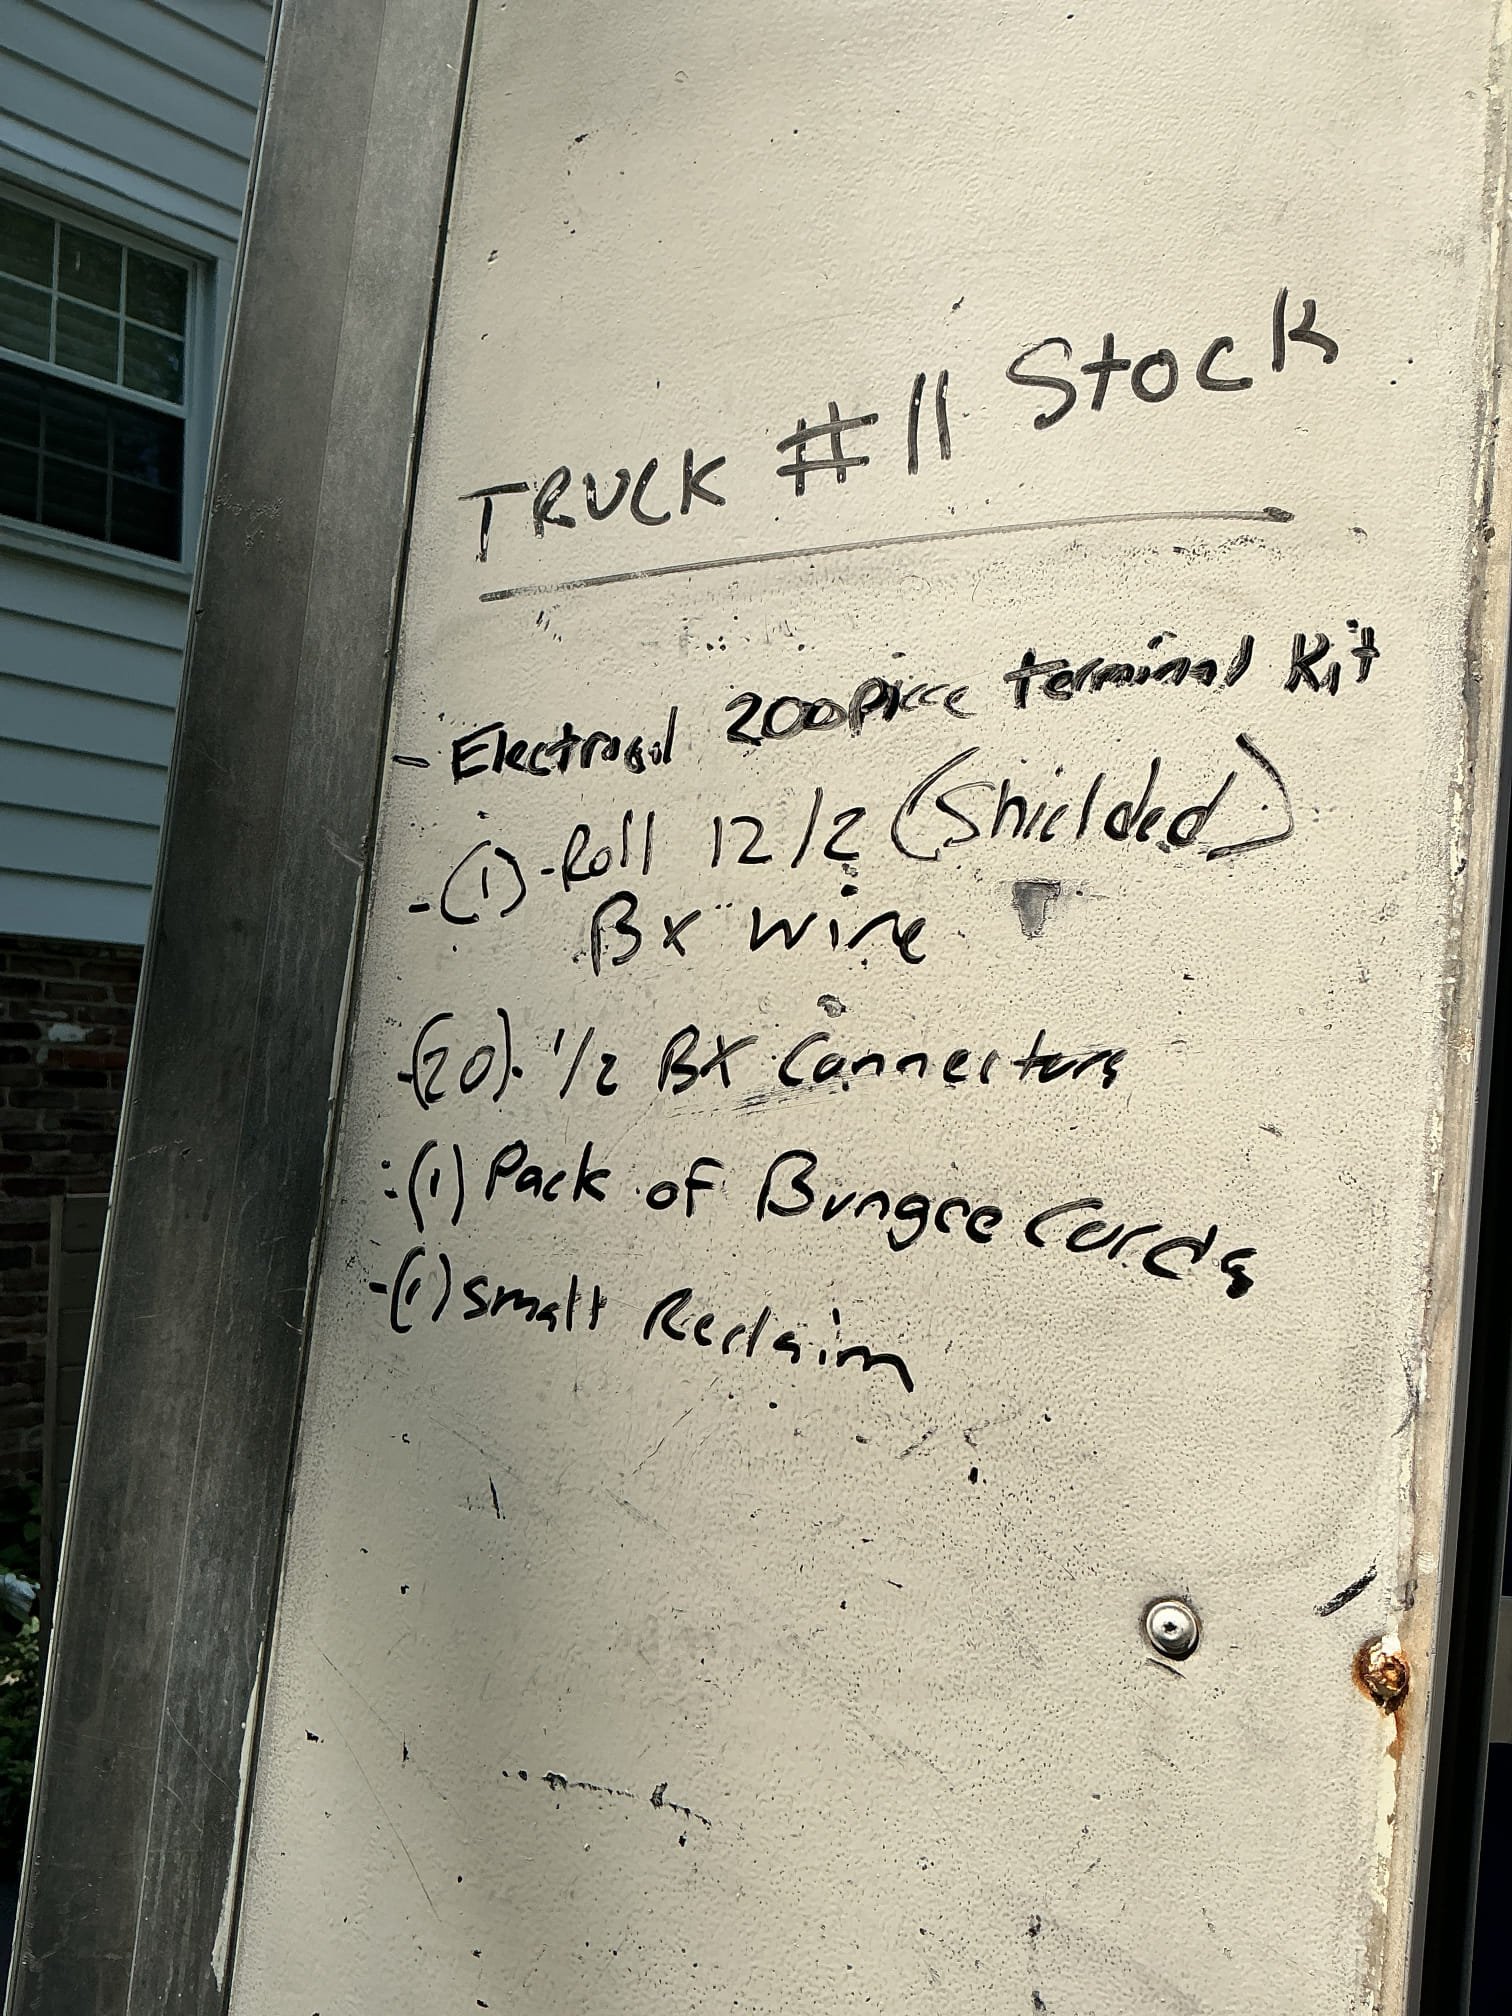 TRUCK #11 Stock
- Electrical 200 piece terminal Kit
- (1) - Roll 12/2 (Shielded)
BX wire
- (20) - 1/2 BX Connectors
- (1) Pack of Bungee Cords
- (1) Small Reclaim